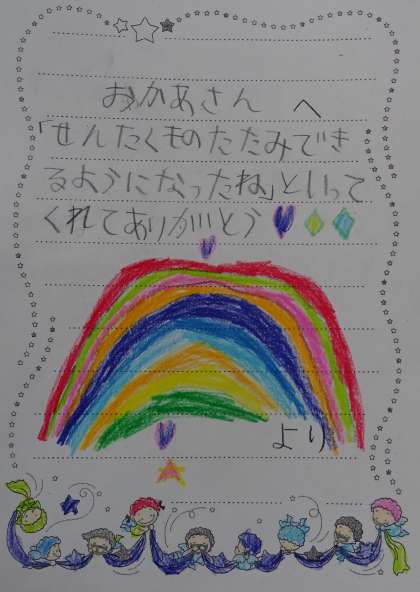 おかあさん へ
「せんたくものたたみでき
るようになったね」といって
くれてありがとう
より